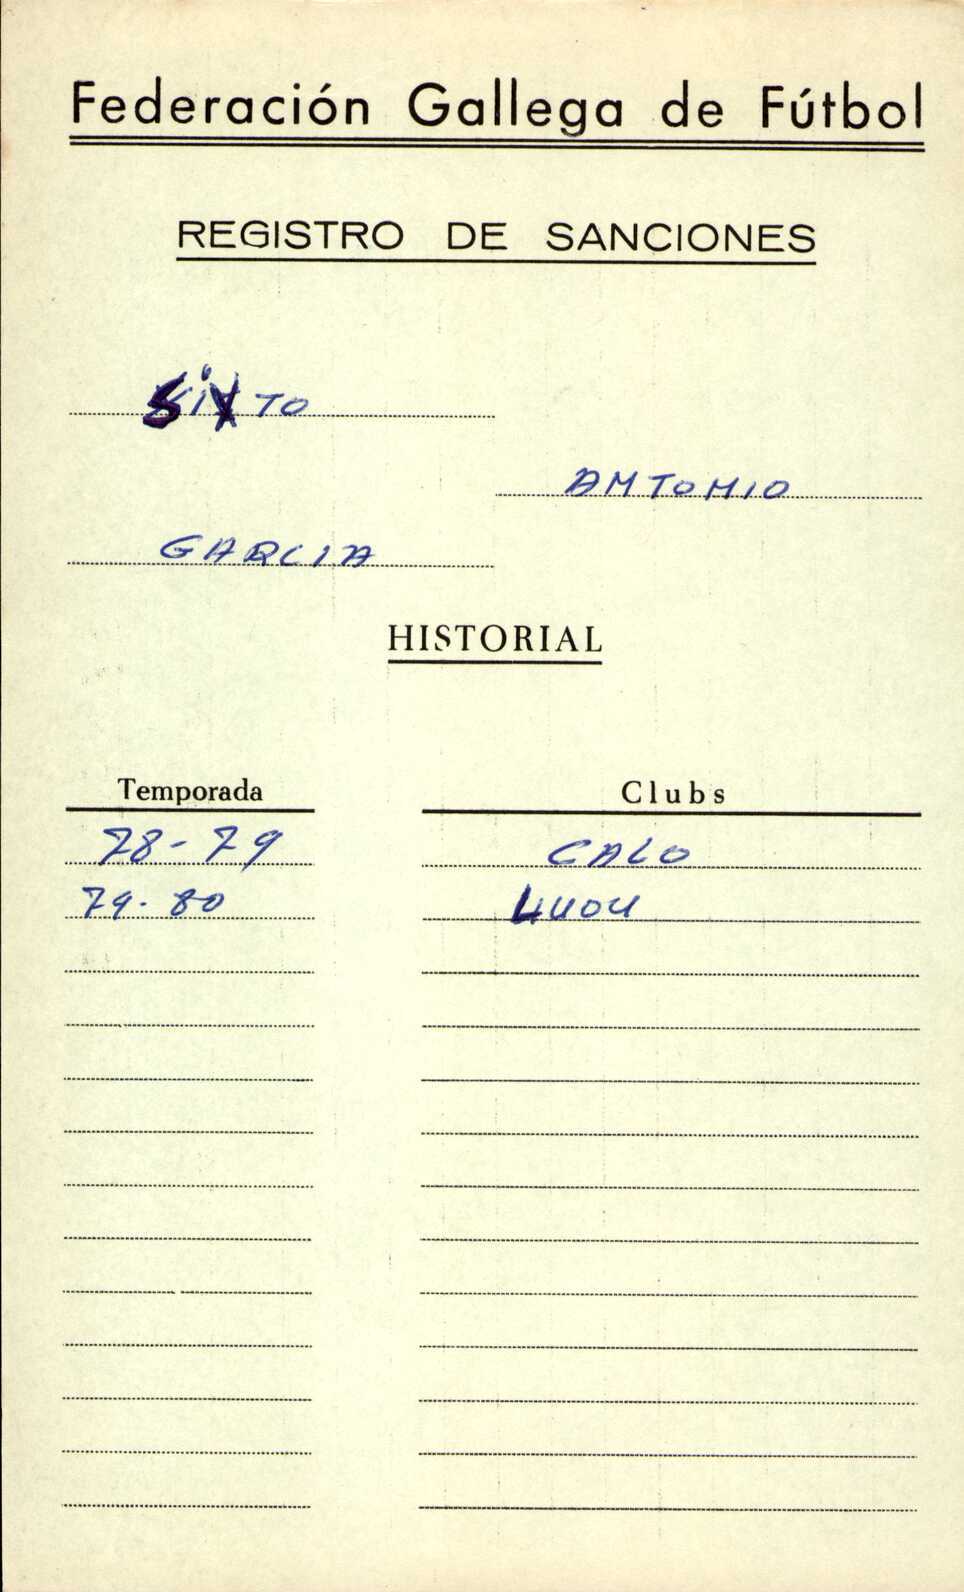 Federación Gallega de Fútbol
REGISTRO DE SANCIONES
SIXTO
ANTONIO
GARCIA
HISTORIAL
Temporada Clubs
78-79 CALO
79-80